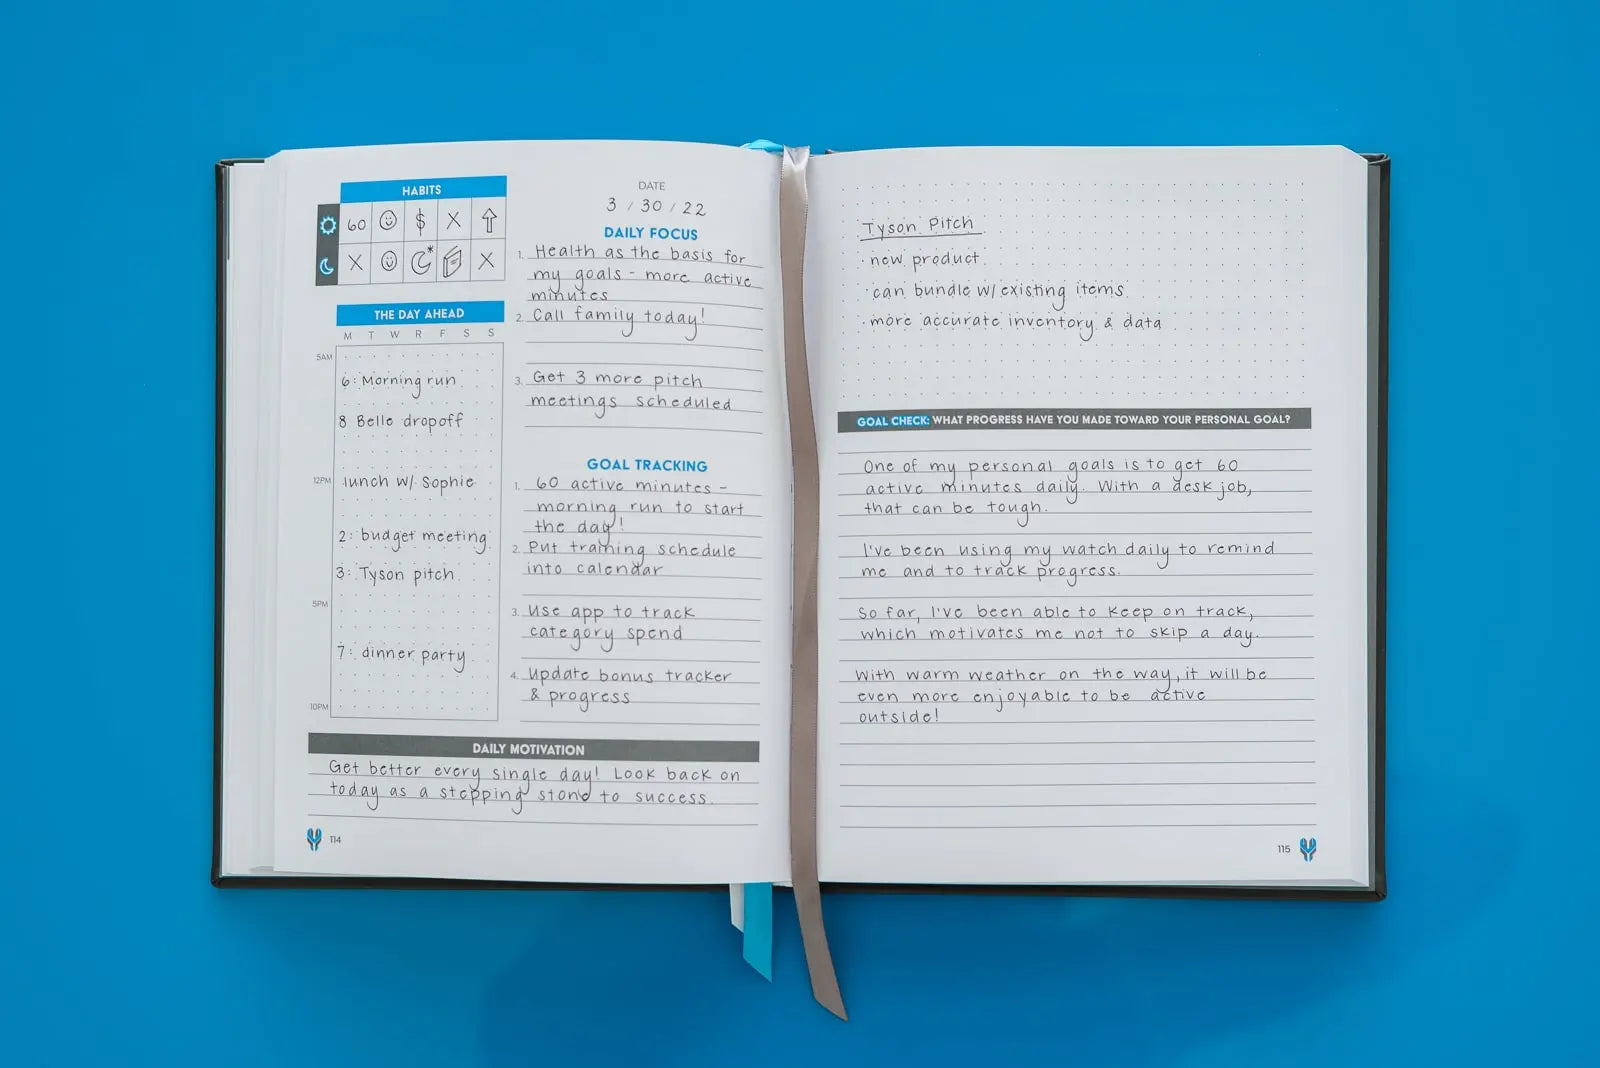 HABITS
60 $ X
X X
THE DAY AHEAD
M T W R F S S
5AM
6: Morning run
8 Belle dropoff
12PM lunch w/ Sophie
2: budget meeting
3: Tyson pitch
5PM
7: dinner party
10PM
DATE
3 / 30 / 22
DAILY FOCUS
1. Health as the basis for
my goals - more active
minutes
2. Call family today!
3. Get 3 more pitch
meetings scheduled
GOAL TRACKING
1. 60 active minutes -
morning run to start
the day!
2. Put training schedule
into calendar
3. Use app to track
category spend
4. Update bonus tracker
& progress
DAILY MOTIVATION
Get better every single day! Look back on
today as a stepping stone to success.
114
Tyson Pitch
· new product
· can bundle w/ existing items
· more accurate inventory & data
GOAL CHECK: WHAT PROGRESS HAVE YOU MADE TOWARD YOUR PERSONAL GOAL?
One of my personal goals is to get 60
active minutes daily. With a desk job,
that can be tough.
I've been using my watch daily to remind
me and to track progress.
So far, I've been able to keep on track,
which motivates me not to skip a day.
With warm weather on the way, it will be
even more enjoyable to be active
outside!
115